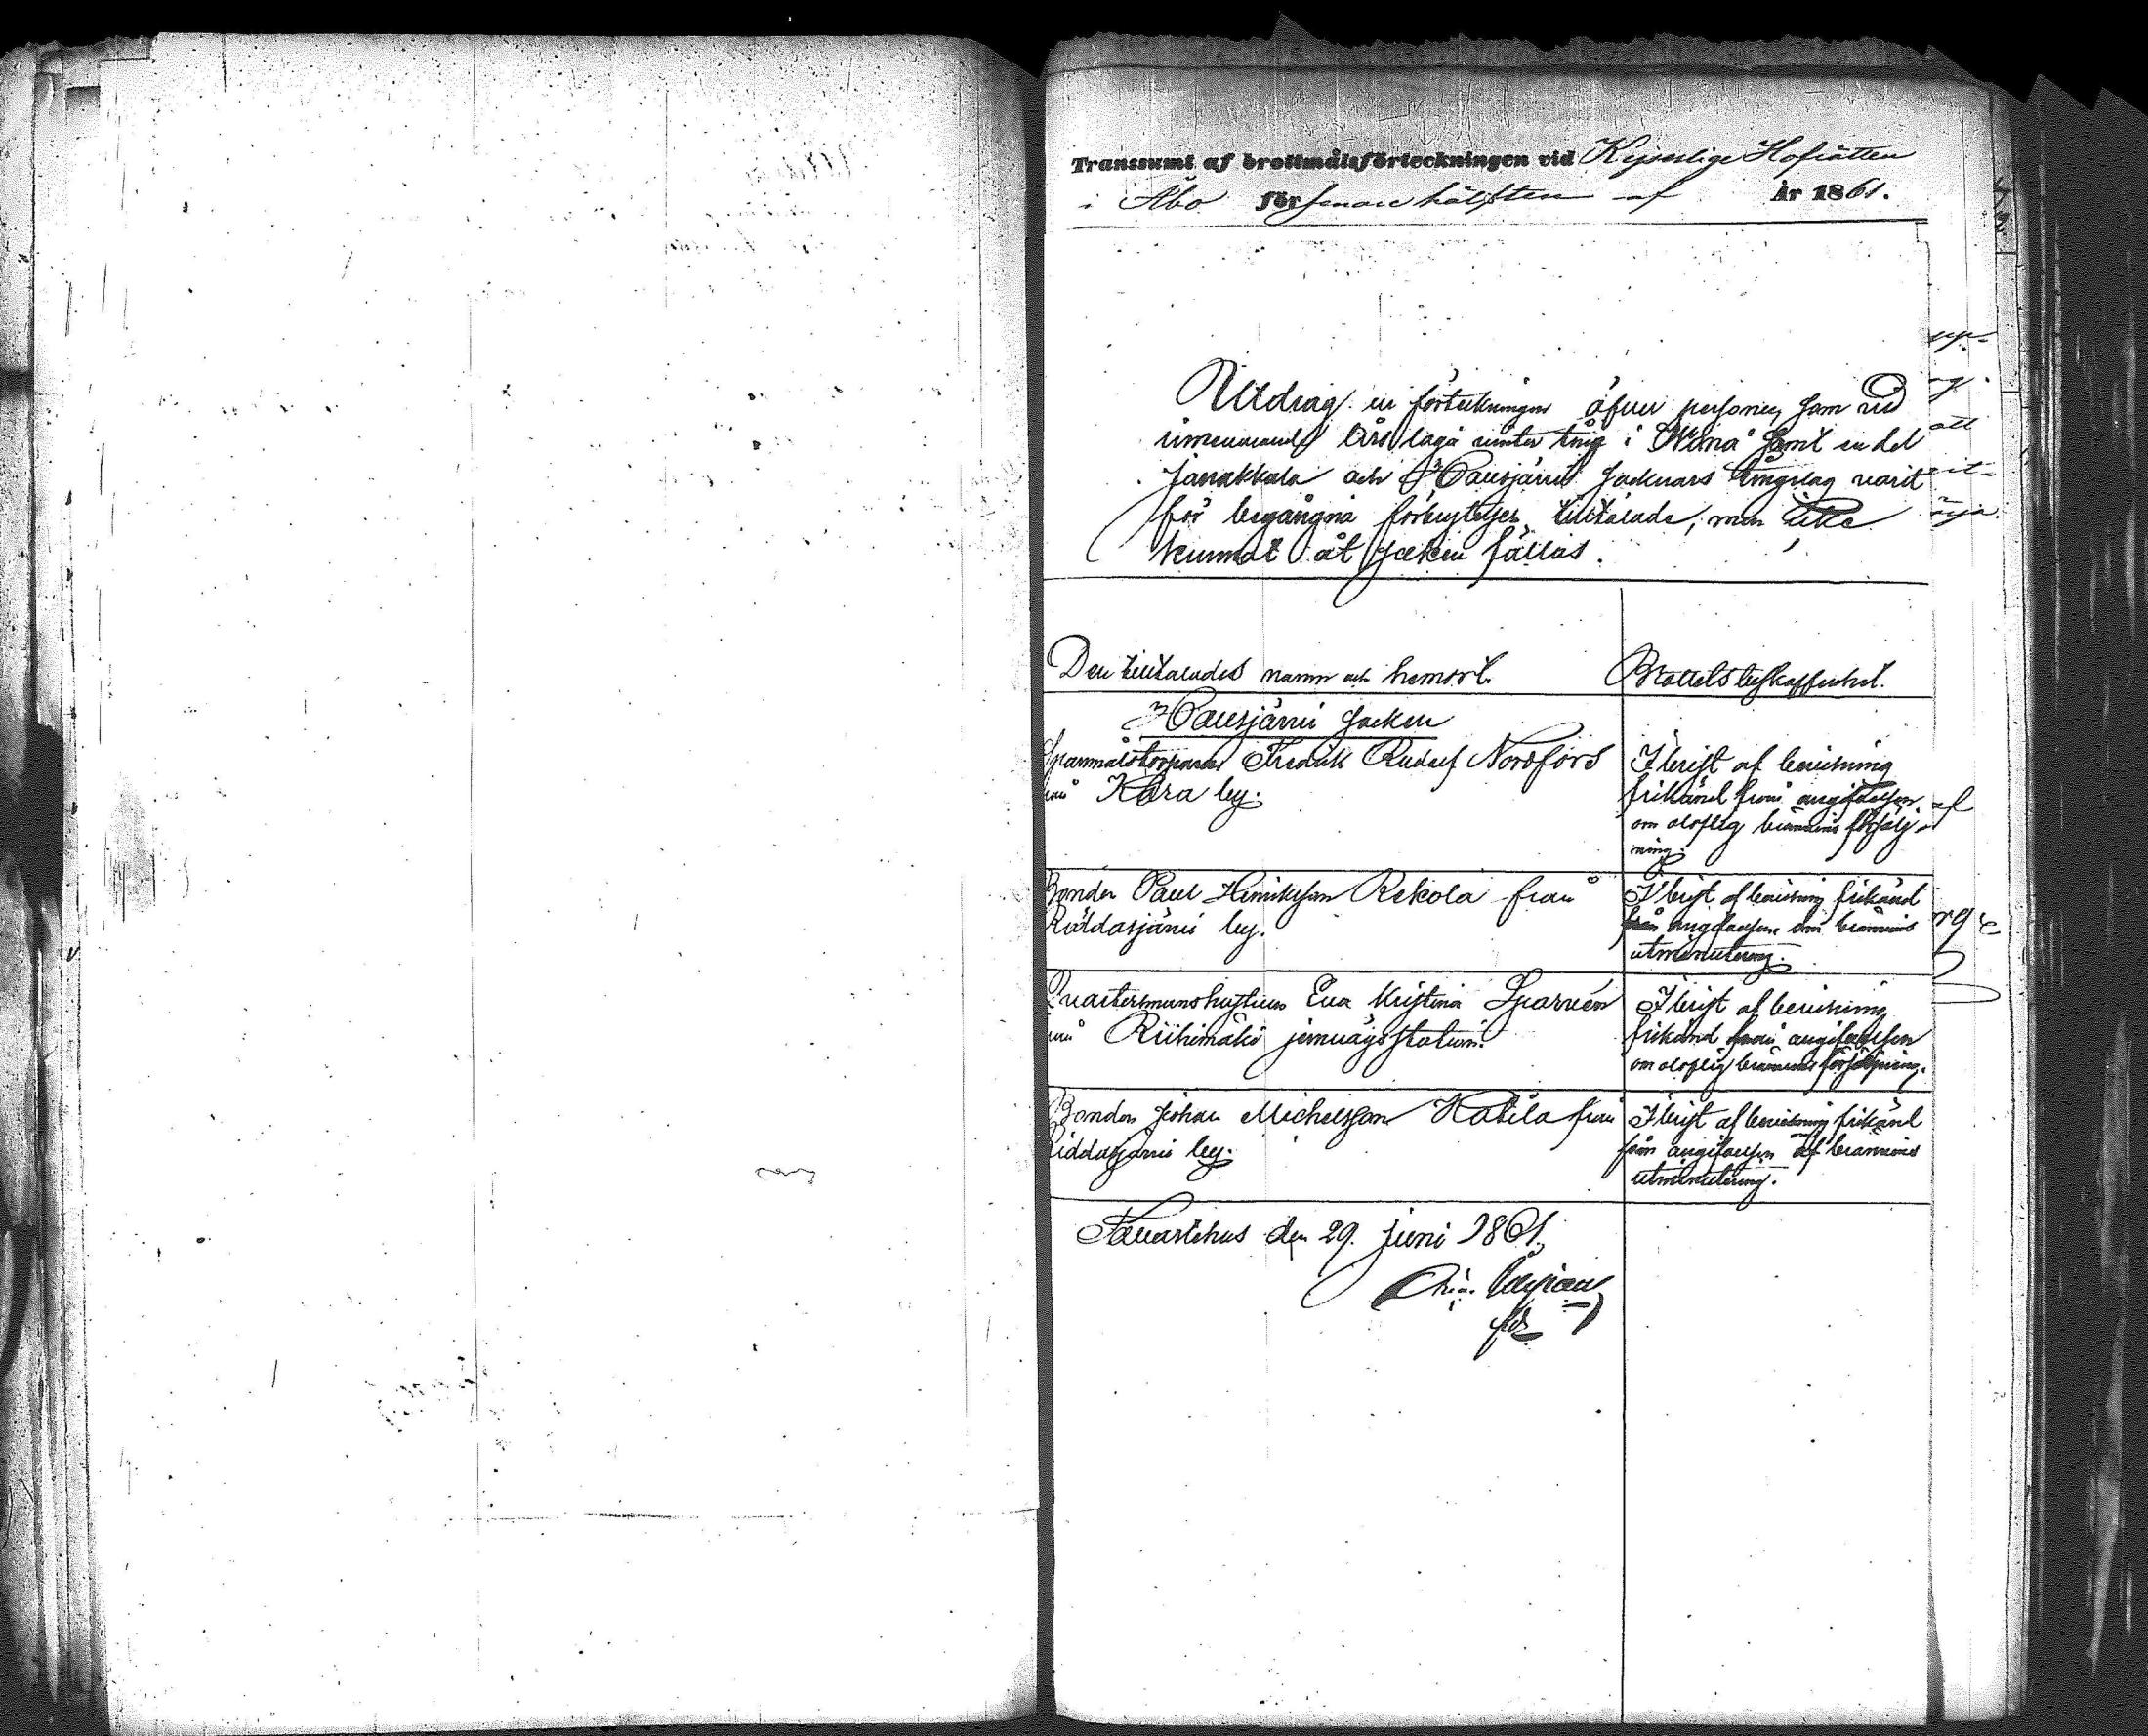 Transsumt af brottmålsförteckningen vid Kejserliga Hofrätten
i Åbo för senare hälften af År 1861.
Utdrag ur förteckningen öfver personer, som vid
innevarande års laga vinter ting i Wånå samt en del
Janakkala och Hausjärvi socknars tingslag varit
för begångna förbrytelser tilltalade, men icke
kunnat åt saken fällas.
Den tilltalades namn och hemort. Brottets beskaffenhet.
Hausjärvi socken
Spannmålstorparen Fredrik Rudolf Nordfors
från Kara by.
I brist af bevisning
frikänd från angifvelsen
om oloflig bränvins försälj-
ning.
Bonden Paul Henriksson Rekola från
Räddasjärvi by.
I brist af bevisning frikänd
från angifvelsen om bränvins
utminutering.
Quartermanshustrun Eva Kristina Sparvén
från Riihimäki jernvägsstation.
I brist af bevisning
frikänd från angifvelsen
om oloflig bränvins försäljning.
Bonden Johan Michelsson Kabila från
Riddasjärvi by.
I brist af bevisning frikänd
från angifvelsen af bränvins
utminutering.
Tavastehus den 29. juni 1861.
att
af